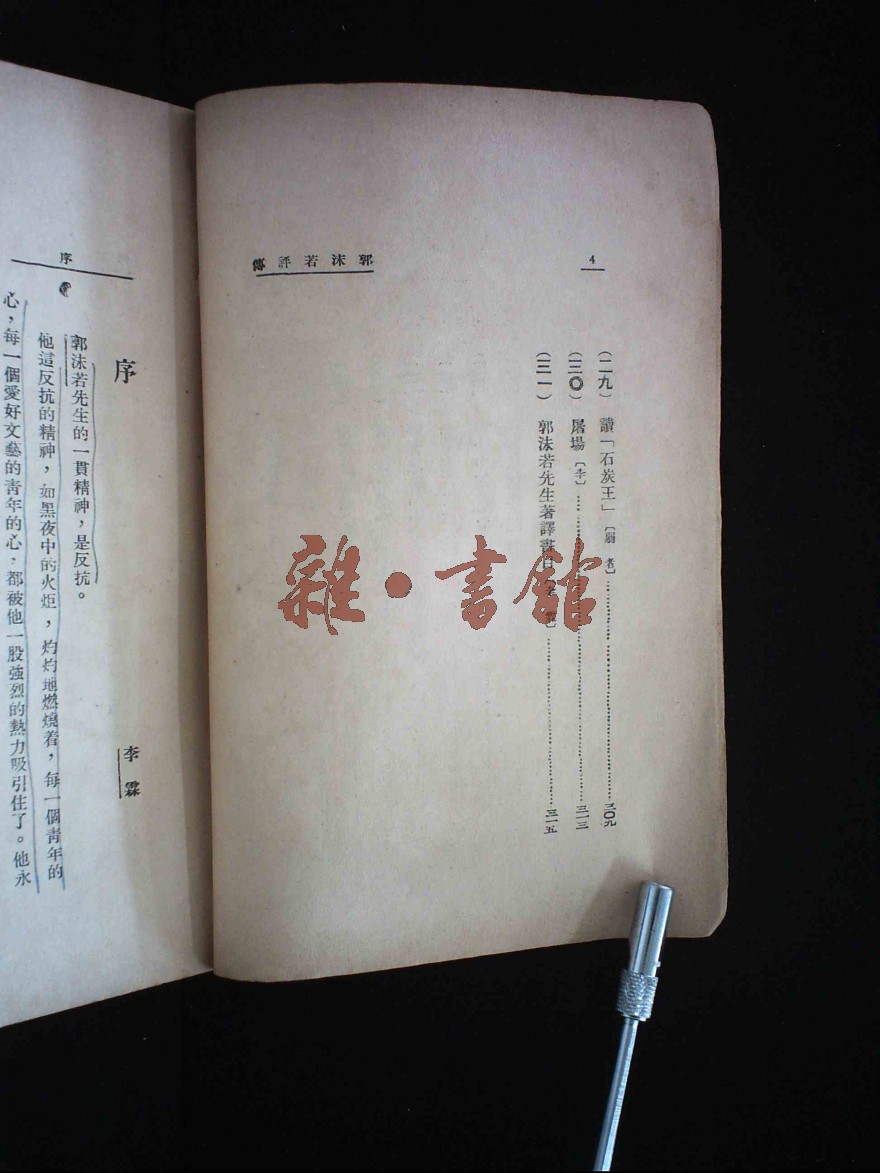 4
郭沫若評傳
(二九) 讀「石炭王」〔弱 者〕……三〇九
(三〇) 屠場〔李〕……三一三
(三一) 郭沫若先生著譯書目……三一五
雜·書館
序
序
李霖
郭沫若先生的一貫精神，是反抗。
他這反抗的精神，如黑夜中的火炬，灼灼地燃燒着，每一個靑年的
心，每一個愛好文藝的靑年的心，都被他一股強烈的熱力吸引住了。他永